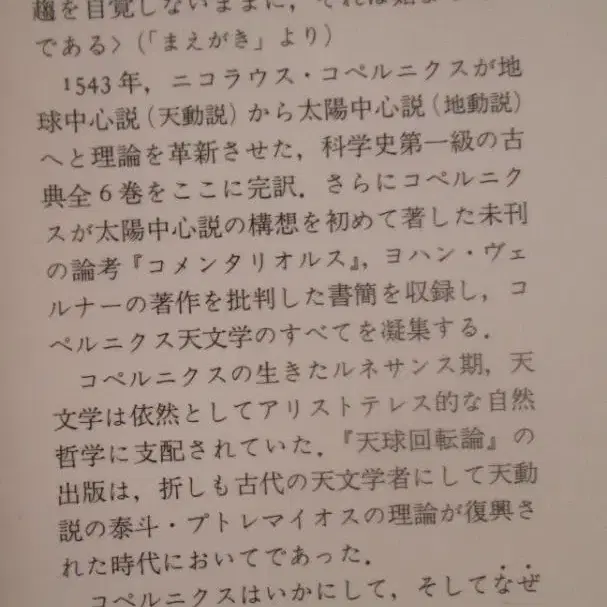 趣を自覚しないままに，それは始ま
である〉（「まえがき」より）
1543年，ニコラウス・コペルニクスが地
球中心説（天動説）から太陽中心説（地動説）
へと理論を革新させた，科学史第一級の古
典全6巻をここに完訳．さらにコペルニク
スが太陽中心説の構想を初めて著した未刊
の論考『コメンタリオルス』，ヨハン・ヴェ
ルナーの著作を批判した書簡を収録し，コ
ペルニクス天文学のすべてを凝集する．
コペルニクスの生きたルネサンス期，天
文学は依然としてアリストテレス的な自然
哲学に支配されていた．『天球回転論』の
出版は，折しも古代の天文学者にして天動
説の泰斗・プトレマイオスの理論が復興さ
れた時代においてであった．
コペルニクスはいかにして，そしてなぜ